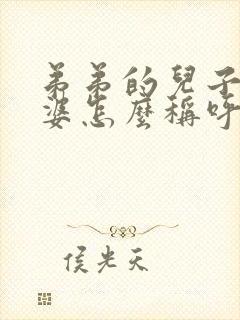 弟弟的兒子
婆怎麼稱呼
侯光天